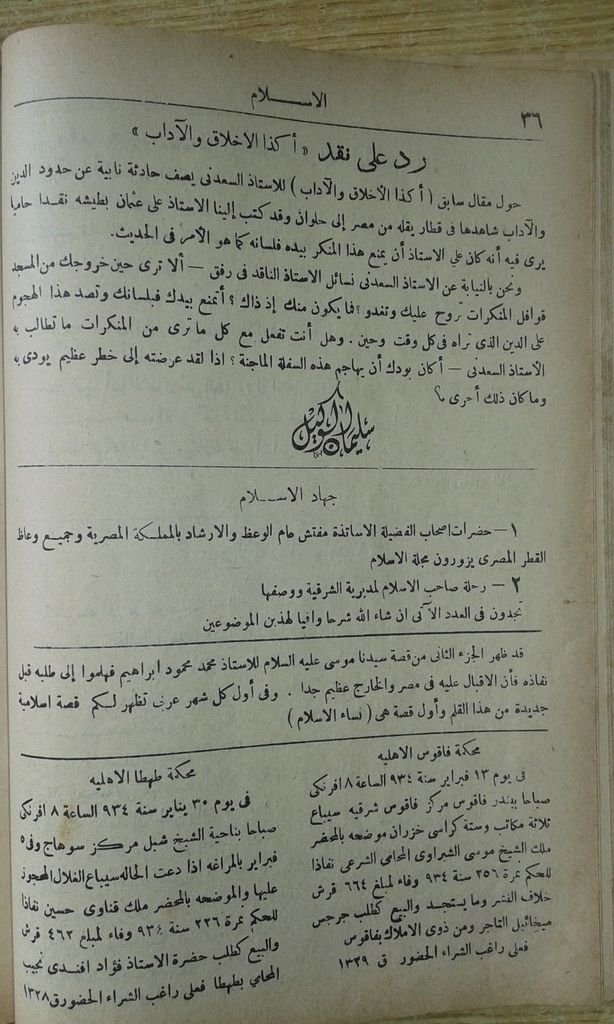 الاســلام
٣٦
رد على نقد « أكذا الاخلاق والآداب »
حول مقال سابق ( أكذا الأخلاق والآداب ) للاستاذ السعدنى يصف حادثة نابية عن حدود الدين
والآداب شاهدها فى قطار يقله من مصر إلى حلوان وقد كتب إلينا الاستاذ على عثمان بطيشه نقدا حاميا
يرى فيه أنه كان على الاستاذ أن يمنع هذا المنكر بيده فلسانه كما هو الأمر فى الحديث.
ونحن بالنيابة عن الاستاذ السعدنى نسائل الاستاذ الناقد فى رفق — ألا ترى حين خروجك من المسجد
قوافل المنكرات تروح عليك وتغدو ؟ فما يكون منك إذ ذاك ؟ أتمنع بيدك فبلسانك وتصد هذا الهجوم
على الدين الذى تراه فى كل وقت وحين . وهل أنت تفعل مع كل ما ترى من المنكرات ما تطالب به
الأستاذ السعدنى — أكان بودك أن يهاجم هذه السفلة الماجنة ؟ اذا لقد عرضته إلى خطر عظيم يودى به
وما كان ذلك أحرى ؟
سليمان الوكيل
جهاد الاســلام
١ — حضرات اصحاب الفضيلة الاساتذة مفتش عام الوعظ والارشاد بالمملكة المصرية وجميع وعاظ
القطر المصرى يزورون مجلة الاسلام
٢ — رحلة صاحب الاسلام لمديرية الشرقية ووصفها
تجدون فى العدد الآتى ان شاء الله شرحا وافيا لهذين الموضوعين
قد ظهر الجزء الثانى من قصة سيدنا موسى عليه السلام للاستاذ محمد محمود ابراهيم فهلموا إلى طلبه قبل
نفاذه فأن الاقبال عليه فى مصر والخارج عظيم جدا . وفى أول كل شهر عربى تظهر لكم قصة اسلامية
جديدة من هذا القلم وأول قصة هى ( نساء الاسلام )
محكمة فاقوس الاهليه
فى يوم ١٣ فبراير سنة ٩٣٤ الساعة ٨ افرنكى
صباحا ببندر فاقوس مركز فاقوس شرقيه سيباع
ثلاثة مكاتب وستة كراسى خزران موضحه بالمحضر
ملك الشيخ موسى الشبراوى المحامى الشرعى نفاذا
للحكم نمرة ٢٥٦ سنة ٩٣٤ وفاء لمبلغ ٦٦٤ قرش
خلاف النشر وما يستجد والبيع كطلب جرجس
ميخائيل التاجر ومن ذوى الاملاك بفاقوس
فعلى راغب الشراء الحضور ق ١٣٢٩
محكمة طهطا الاهليه
فى يوم ٣٠ يناير سنة ٩٣٤ الساعة ٨ افرنكى
صباحا بناحية الشيخ شبل مركز سوهاج وفى ٥
فبراير بالمراغه اذا دعت الحاله سيباع الغلال المحجوز
عليها والموضحه بالمحضر ملك قناوى حسين نفاذا
للحكم نمرة ٢٢٦ سنة ٩٣٤ وفاء لمبلغ ٤٦٢ قرش
والبيع كطلب حضرة الاستاذ فؤاد افندى نجيب
المحامي بطهطا فعلى راغب الشراء الحضور ق ١٣٢٨